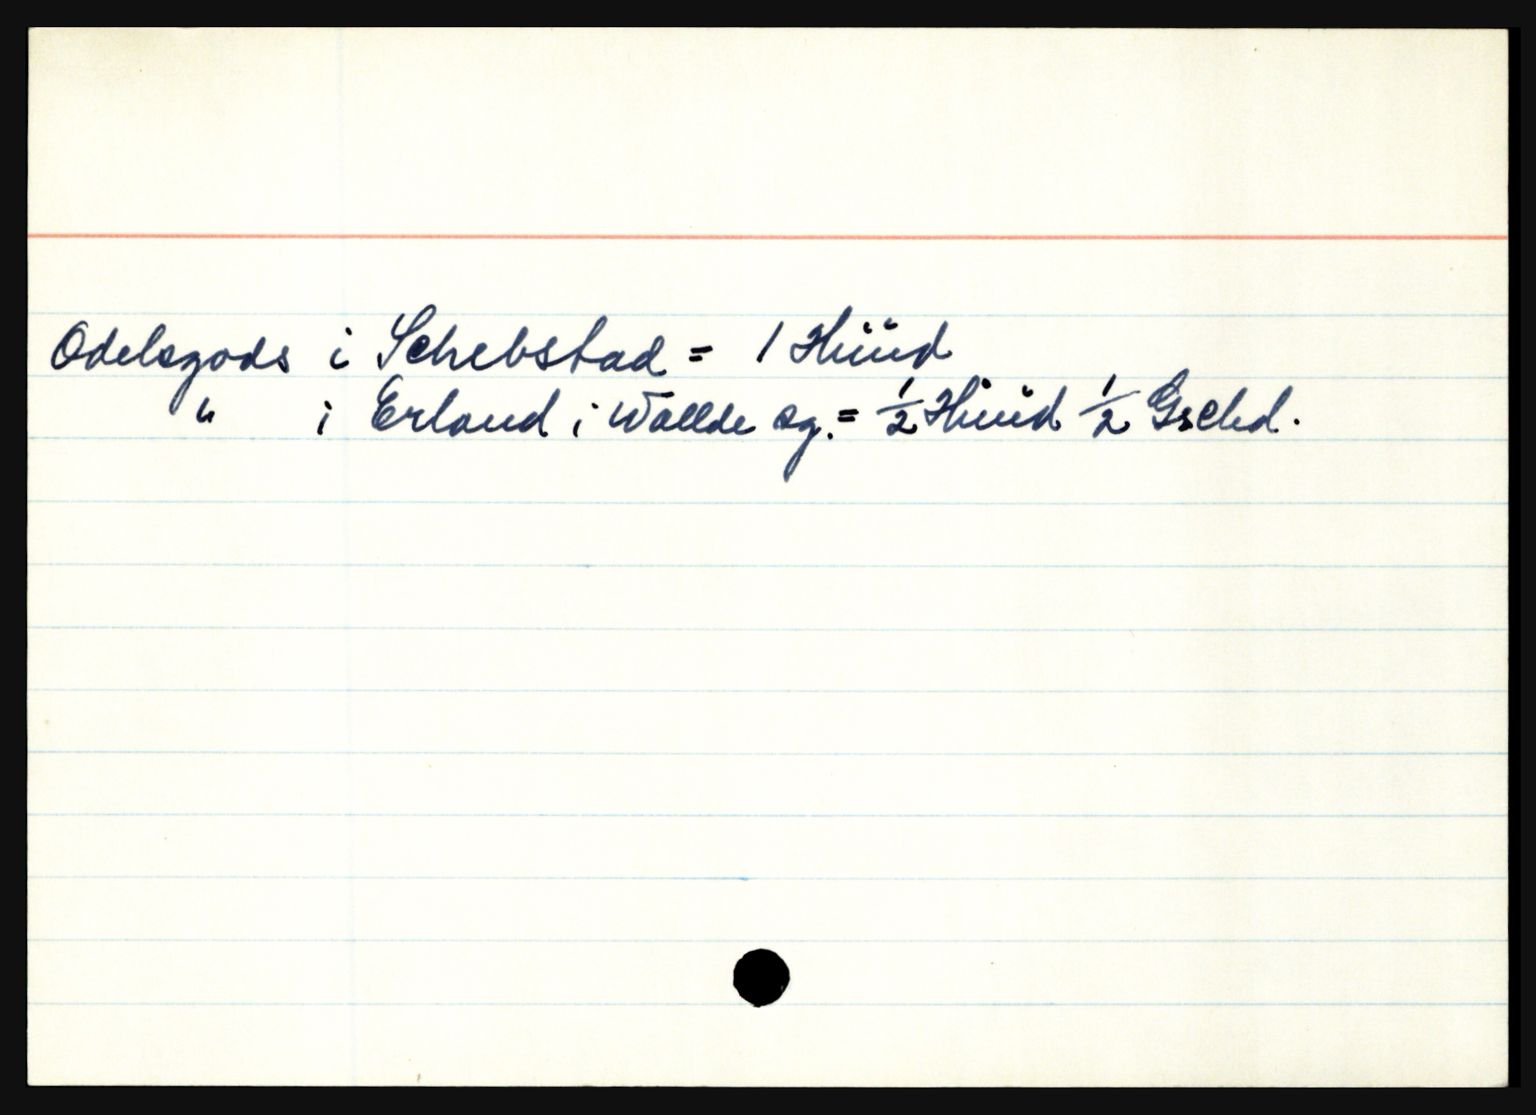 Odelsgods i Schebstad = 1 Hüüd
" i Erland i Wallde sg. = 1/2 Hüüd 1/2 Gschd.